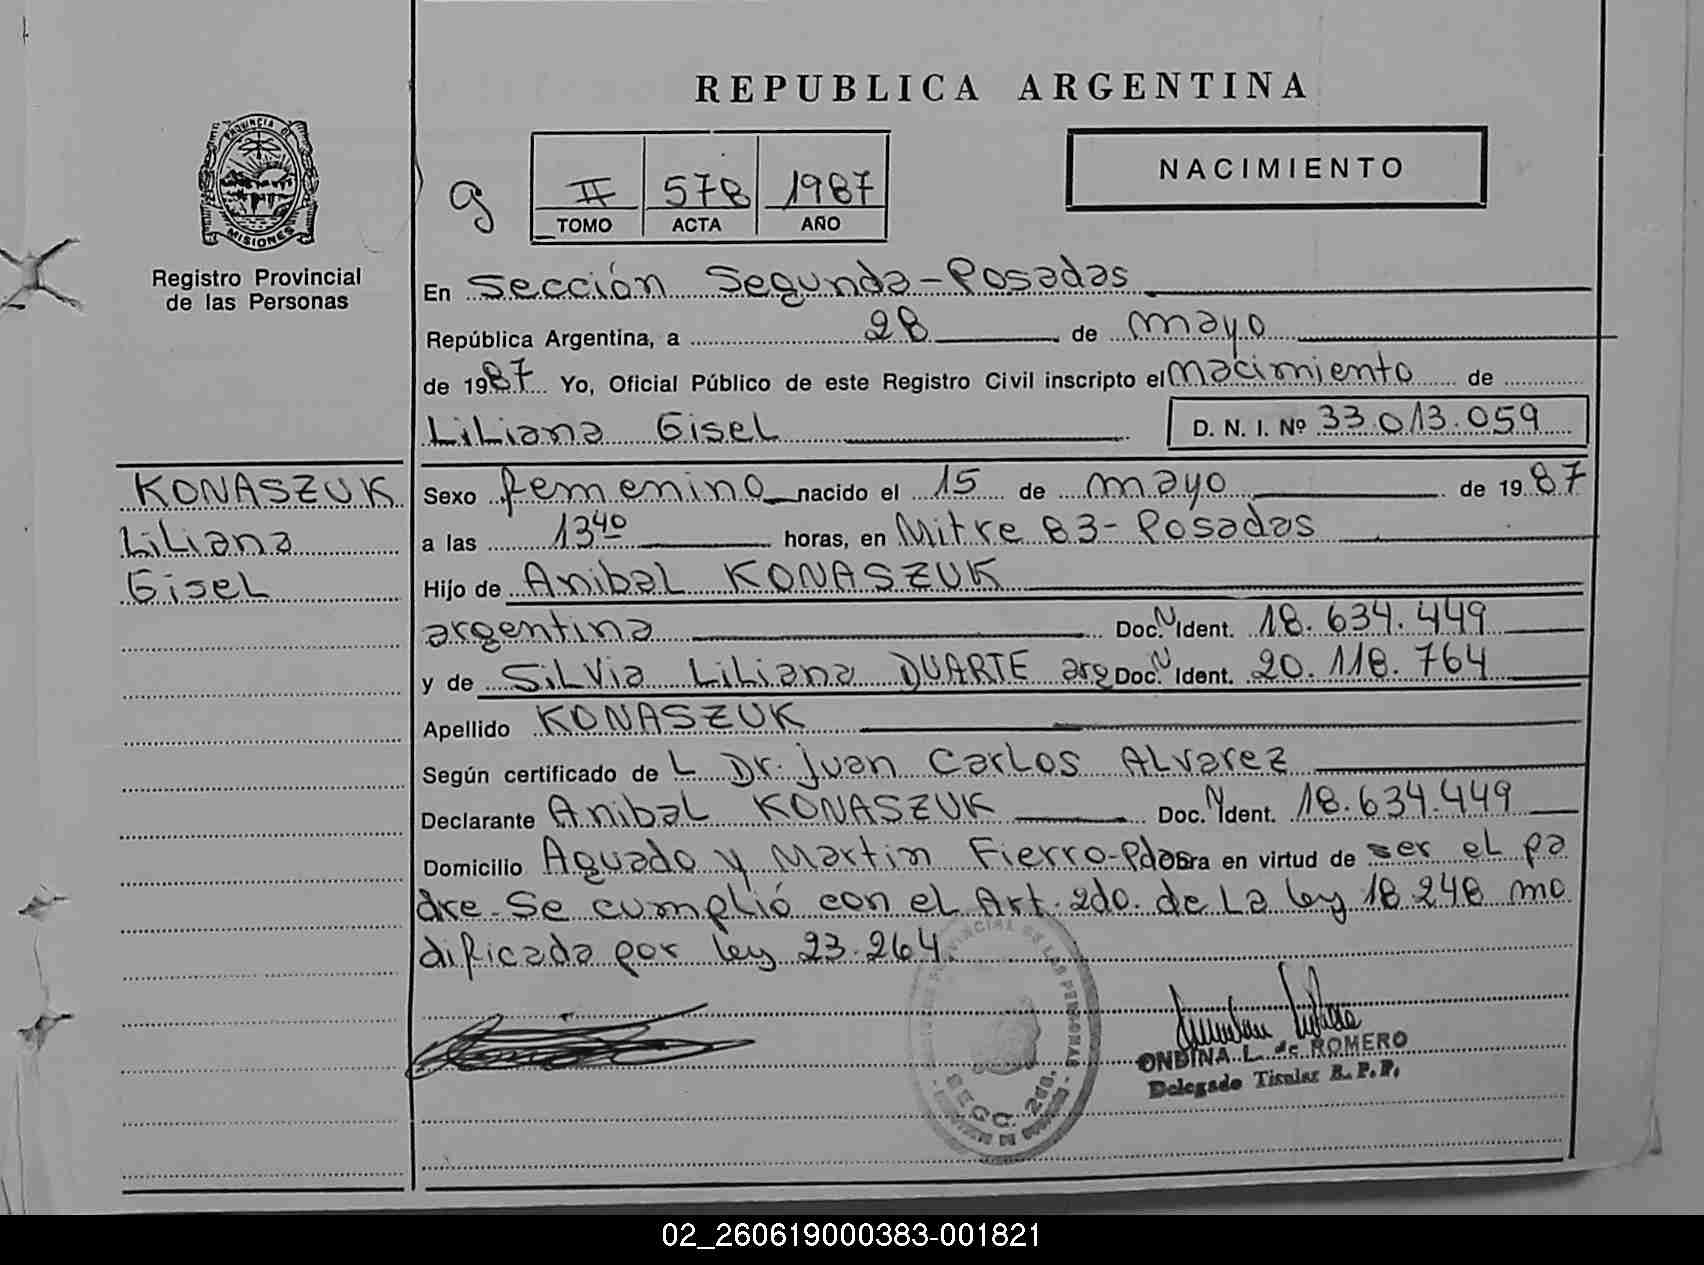 REPUBLICA ARGENTINA
PROVINCIA DE
MISIONES
Registro Provincial
de las Personas
g
II 578 1987
TOMO ACTA AÑO
NACIMIENTO
En Sección Segunda-Posadas
República Argentina, a 28 de mayo
de 1987 Yo, Oficial Público de este Registro Civil inscripto el nacimiento de
Liliana Gisel D. N. I. Nº 33.013.059
KONASZUK
Liliana
Gisel
Sexo femenino nacido el 15 de mayo de 1987
a las 13 40 horas, en Mitre 83-Posadas
Hijo de Anibal KONASZUK
argentina Doc. N Ident. 18.634.449
y de Silvia Liliana DUARTE arg Doc. N Ident. 20.118.764
Apellido KONASZUK
Según certificado de L Dr. Juan Carlos Alvarez
Declarante Anibal KONASZUK Doc. N Ident. 18.634.449
Domicilio Aguado y Martin Fierro-Pdas. en virtud de ser el pa
dre. Se cumplió con el Art. 2do. de La ley 18.248 mo
dificada por ley 23.264.
SECC. 2da.
ONDINA L. de ROMERO
Delegado Titular R. P. P.
02_260619000383-001821